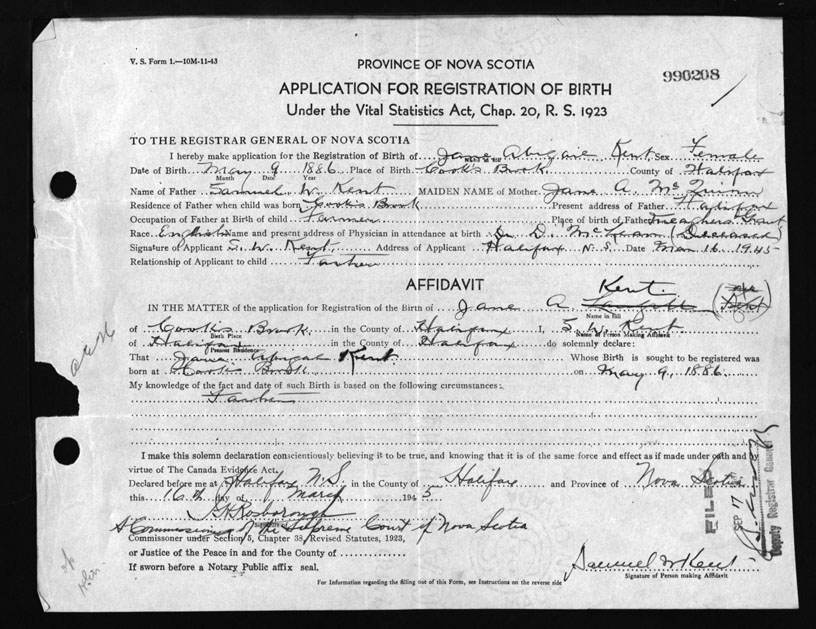 V. S. Form 1.—10M-11-43
PROVINCE OF NOVA SCOTIA
990208
APPLICATION FOR REGISTRATION OF BIRTH
Under the Vital Statistics Act, Chap. 20, R. S. 1923
TO THE REGISTRAR GENERAL OF NOVA SCOTIA
I hereby make application for the Registration of Birth of Jane Kent Sex Female
Date of Birth May 9 1886 Place of Birth Cook's Brook County of Halifax
Month Date Year
Name of Father Samuel W. Kent MAIDEN NAME of Mother Jane A.
Residence of Father when child was born Cook's Brook Present address of Father Halifax
Occupation of Father at Birth of child Farmer Place of birth of Father Meaghers Grant
Race English Name and present address of Physician in attendance at birth Dr D. (Deceased)
Signature of Applicant S. W. Kent Address of Applicant Halifax N.S. Date Mar 16 1945
Relationship of Applicant to child Father
AFFIDAVIT
Kent.
IN THE MATTER of the application for Registration of the Birth of Jane A
Name in full
of Cook's Brook in the County of Halifax I, S. W. Kent
Birth Place Name of Person Making Affidavit
of Halifax in the County of Halifax do solemnly declare:
Present Residence
That Kent Whose Birth is sought to be registered was
born at Cooks Brook on May 9, 1886
My knowledge of the fact and date of such Birth is based on the following circumstances:
Father
I make this solemn declaration conscientiously believing it to be true, and knowing that it is of the same force and effect as if made under oath and by
virtue of The Canada Evidence Act.
Declared before me at Halifax N.S. in the County of Halifax and Province of Nova Scotia
this 16th day of March 1945
A Commissioner of the Supreme Court of Nova Scotia
Commissioner under Section 5, Chapter 38, Revised Statutes, 1923,
or Justice of the Peace in and for the County of
If sworn before a Notary Public affix seal.
Samuel W Kent
Signature of Person making Affidavit
For Information regarding the filling out of this Form, see Instructions on the reverse side
FILED
SEP 7
Deputy Registrar General